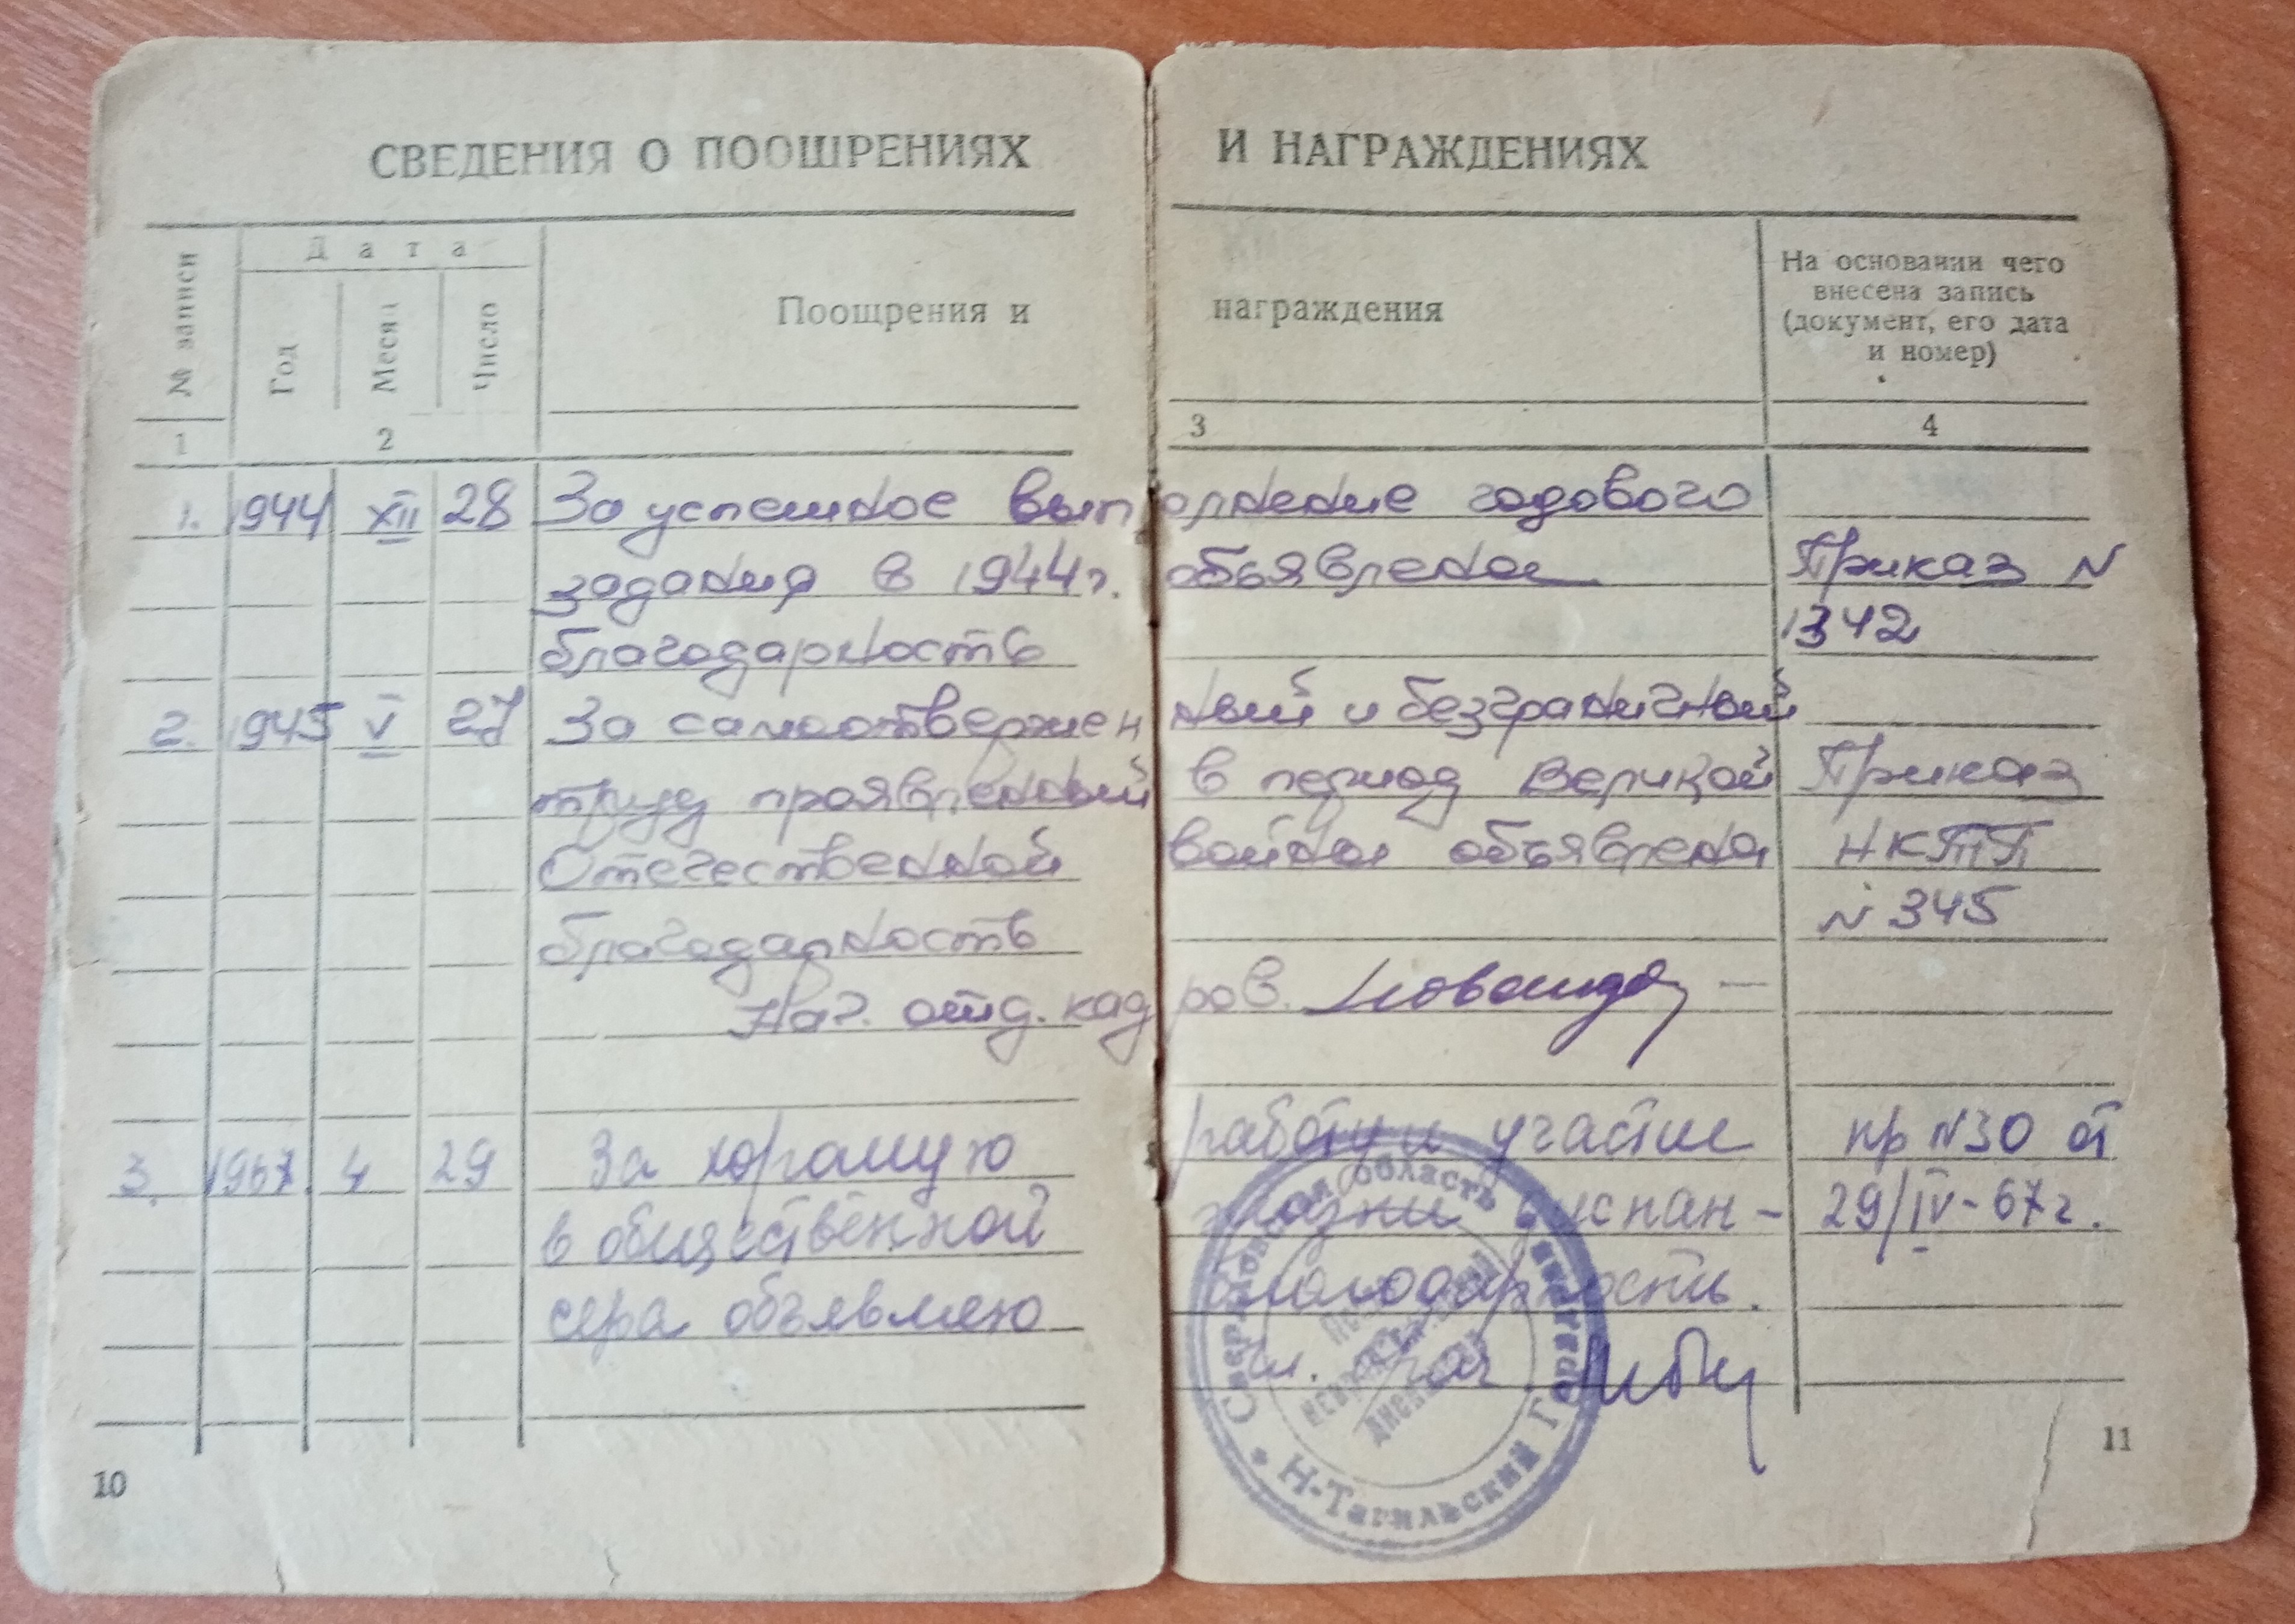 СВЕДЕНИЯ О ПООЩРЕНИЯХ И НАГРАЖДЕНИЯХ
№ записи
Дата
Год
Месяц
Число
Поощрения и награждения
На основании чего
внесена запись
(документ, его дата
и номер)
1 2 3 4
1. 1944 XII 28 За успешное выполнение годового
задания в 1944 г. объявлена Приказ N
благодарность 1342
2. 1945 V 27 За самоотвержен ный и безграничный
труд проявленный в период Великой Приказ
Отечественной войны объявлена НКТП
благодарность N 345
Нач. отд. кадров.
3. 1967. 4 29 За хорошую работу и участие пр N30 от
в общественной жизни диспан- 29/IV-67г.
сера объявляю благодарность.
Свердловская область
Н-Тагильский
10
11